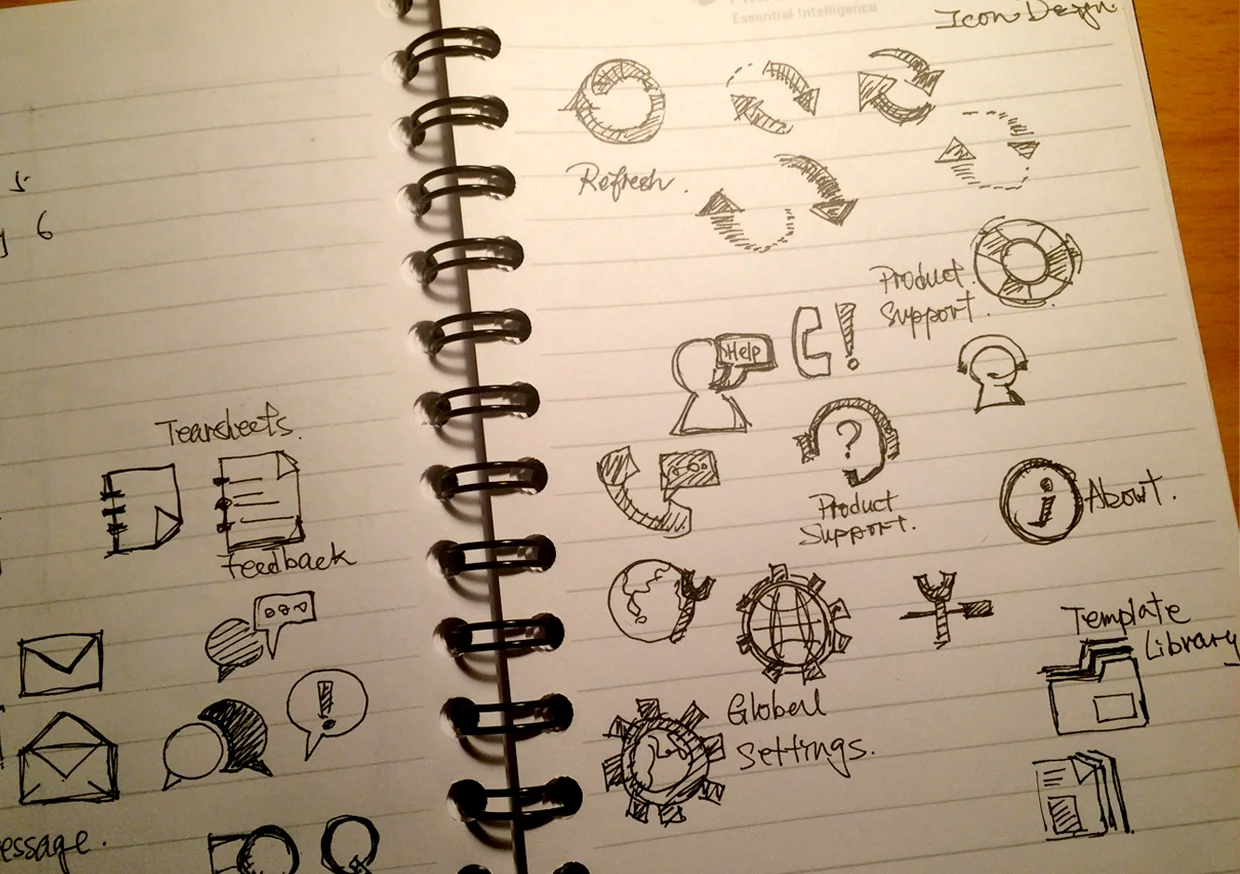 5
6
Tearsheets.
Feedback
essage.
Essential Intelligence
Icon Design
Refresh.
Product
Support.
Help
!
?
Product
Support.
i
About.
Template
Library
Globerl
Settings.
!